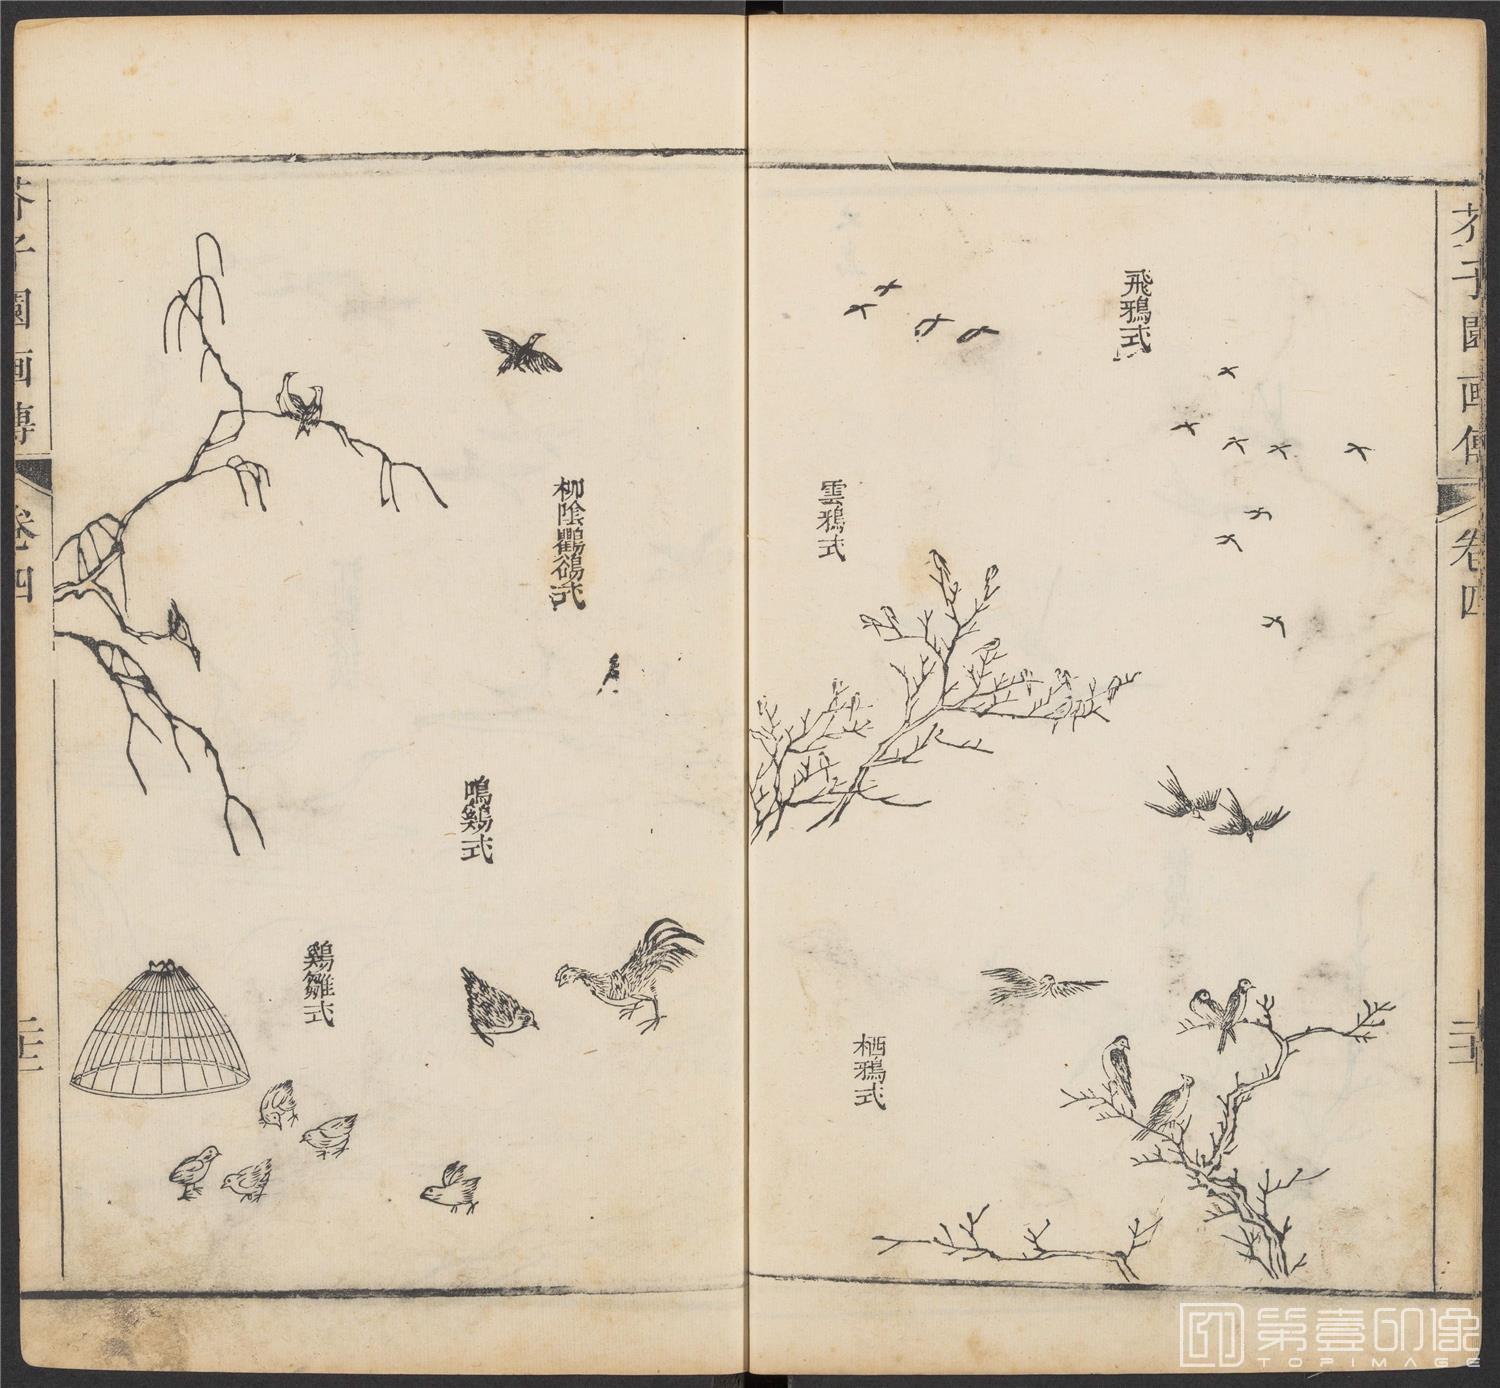 芥子園画傳
卷四
飛鴉式
雲鴉式
栖鴉式
柳陰鸜鵒式
鳴鷄式
鷄雛式
芥子園画傳
卷四
第壹印像
TOPIMAGE